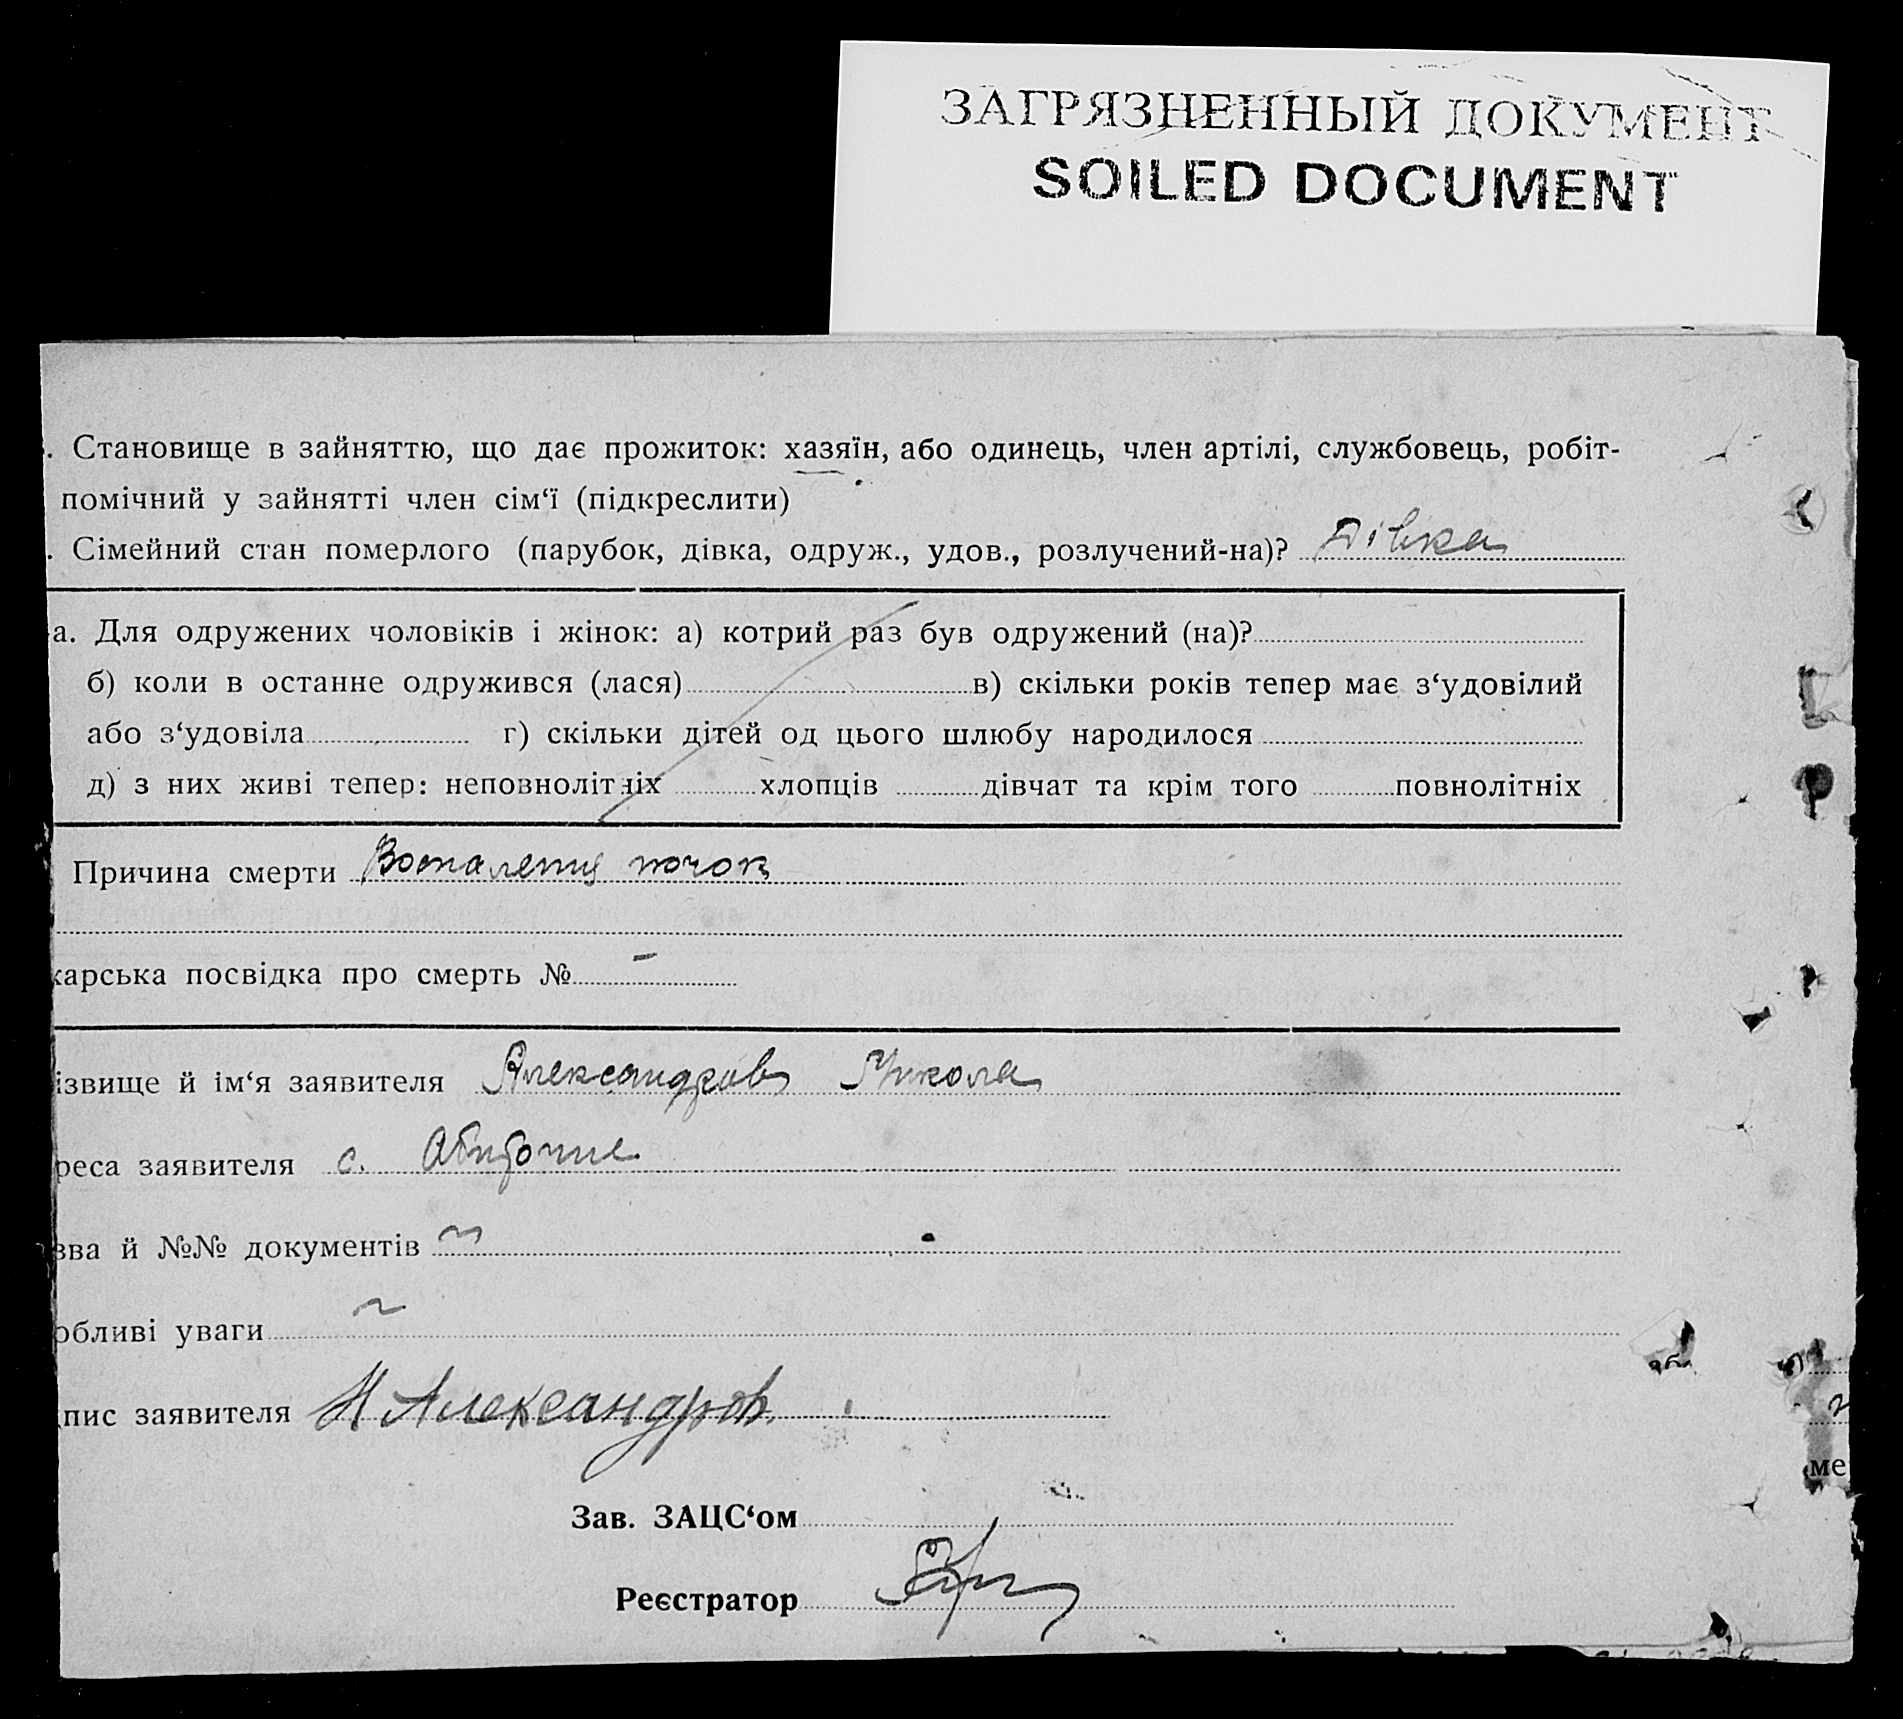 ЗАГРЯЗНЕННЫЙ ДОКУМЕНТ
SOILED DOCUMENT
. Становище в зайняттю, що дає прожиток: хазяїн, або одинець, член артілі, службовець, робіт-
помічний у зайнятті член сім‘ї (підкреслити)
. Сімейний стан померлого (парубок, дівка, одруж., удов., розлучений-на)? Дівка
а. Для одружених чоловіків і жінок: а) котрий раз був одружений (на)?
б) коли в останне одружився (лася) в) скільки років тепер має з‘удовілий
або з‘удовіла г) скільки дітей од цього шлюбу народилося
д) з них живі тепер: неповнолітніх хлопців дівчат та крім того повнолітніх
Причина смерти Воспаления почок
карська посвідка про смерть № -
ізвище й ім‘я заявителя Александров Микола
реса заявителя с.
зва й №№ документів ~
обливі уваги ~
пис заявителя Н Александров
ме
Зав. ЗАЦС‘ом
Реєстратор